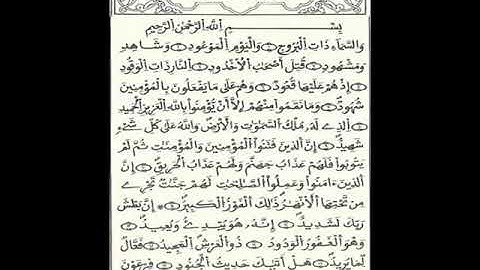 بِسْمِ اللَّهِ الرَّحْمَٰنِ الرَّحِيمِ
وَالسَّمَاءِ ذَاتِ الْبُرُوجِ ۝ وَالْيَوْمِ الْمَوْعُودِ ۝ وَشَاهِدٍ
وَمَشْهُودٍ ۝ قُتِلَ أَصْحَابُ الْأُخْدُودِ ۝ النَّارِ ذَاتِ الْوَقُودِ
۝ إِذْ هُمْ عَلَيْهَا قُعُودٌ ۝ وَهُمْ عَلَىٰ مَا يَفْعَلُونَ بِالْمُؤْمِنِينَ
شُهُودٌ ۝ وَمَا نَقَمُوا مِنْهُمْ إِلَّا أَنْ يُؤْمِنُوا بِاللَّهِ الْعَزِيزِ الْحَمِيدِ
۝ الَّذِي لَهُ مُلْكُ السَّمَٰوَٰتِ وَالْأَرْضِ وَاللَّهُ عَلَىٰ كُلِّ شَيْءٍ
شَهِيدٌ ۝ إِنَّ الَّذِينَ فَتَنُوا الْمُؤْمِنِينَ وَالْمُؤْمِنَٰتِ ثُمَّ لَمْ
يَتُوبُوا فَلَهُمْ عَذَابُ جَهَنَّمَ وَلَهُمْ عَذَابُ الْحَرِيقِ ۝ إِنَّ
الَّذِينَ ءَامَنُوا وَعَمِلُوا الصَّٰلِحَٰتِ لَهُمْ جَنَّٰتٌ تَجْرِي
مِنْ تَحْتِهَا الْأَنْهَٰرُ ذَٰلِكَ الْفَوْزُ الْكَبِيرُ ۝ إِنَّ بَطْشَ
رَبِّكَ لَشَدِيدٌ ۝ إِنَّهُ هُوَ يُبْدِئُ وَيُعِيدُ ۝
وَهُوَ الْغَفُورُ الْوَدُودُ ۝ ذُو الْعَرْشِ الْمَجِيدُ ۝ فَعَّالٌ
لِمَا يُرِيدُ ۝ هَلْ أَتَىٰكَ حَدِيثُ الْجُنُودِ ۝ فِرْعَوْنَ